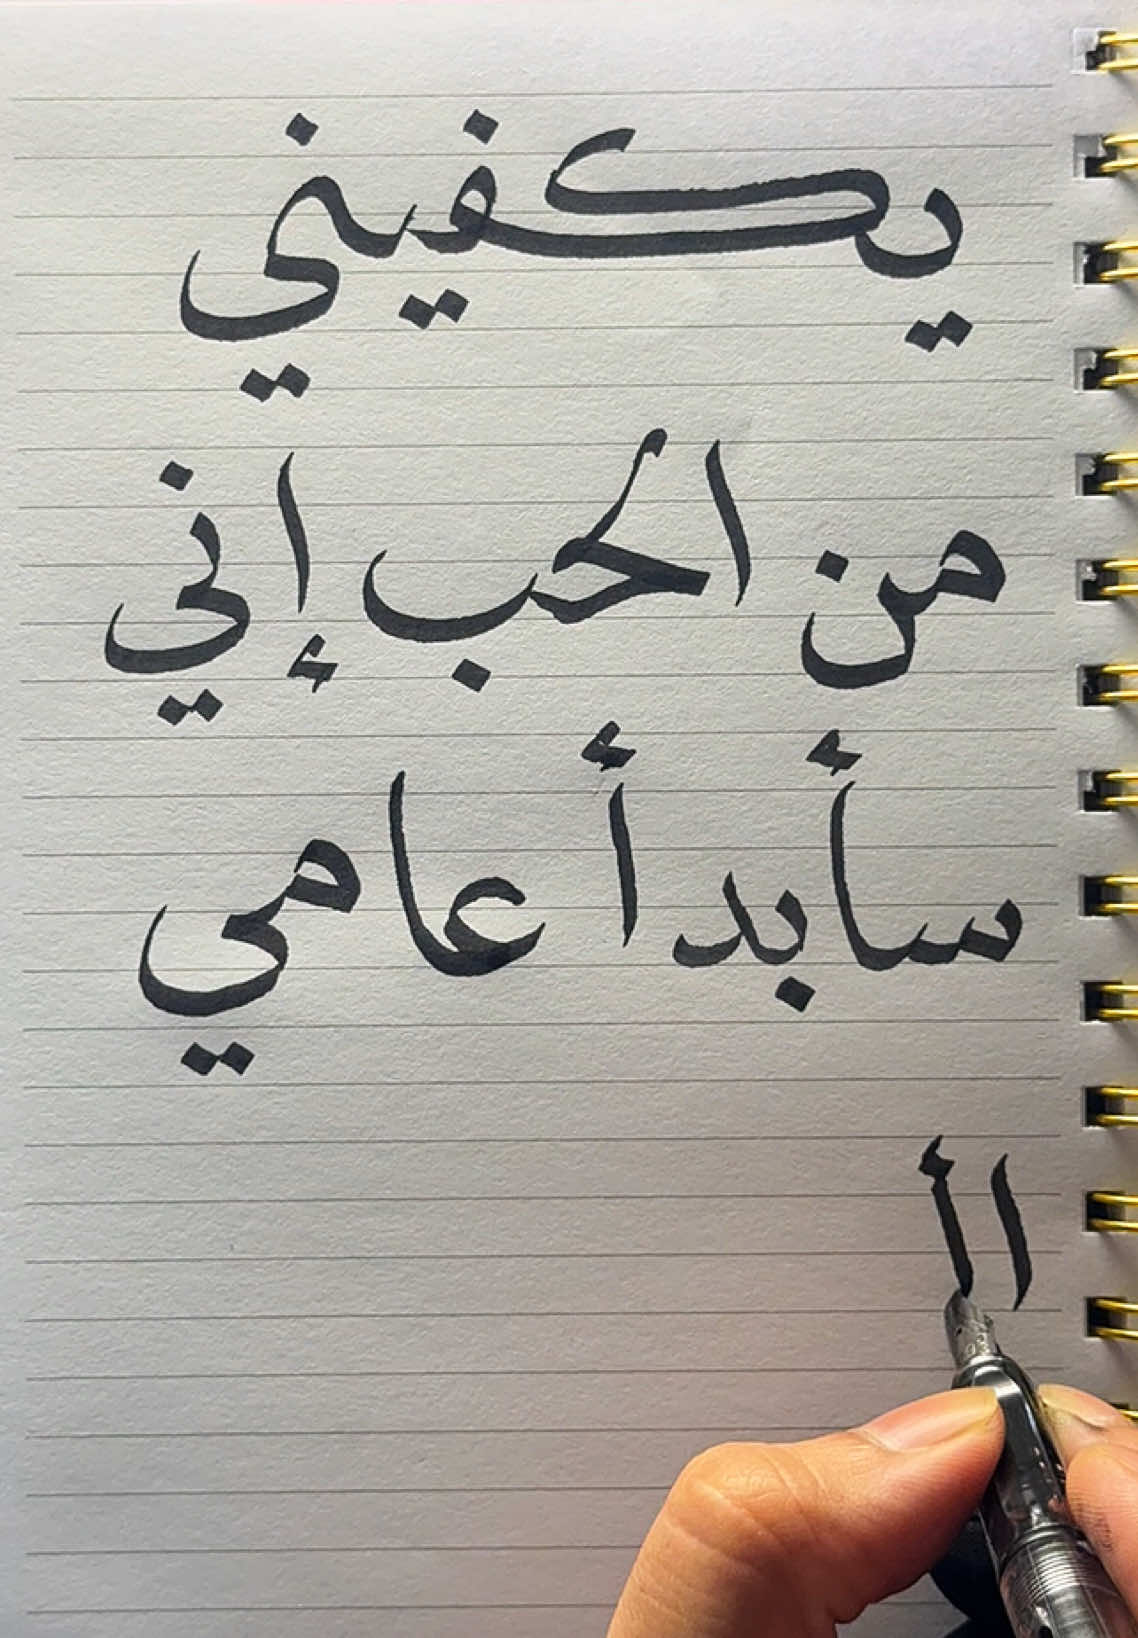 يكفيني
من الحب إني
سأبدأ عامي
ال